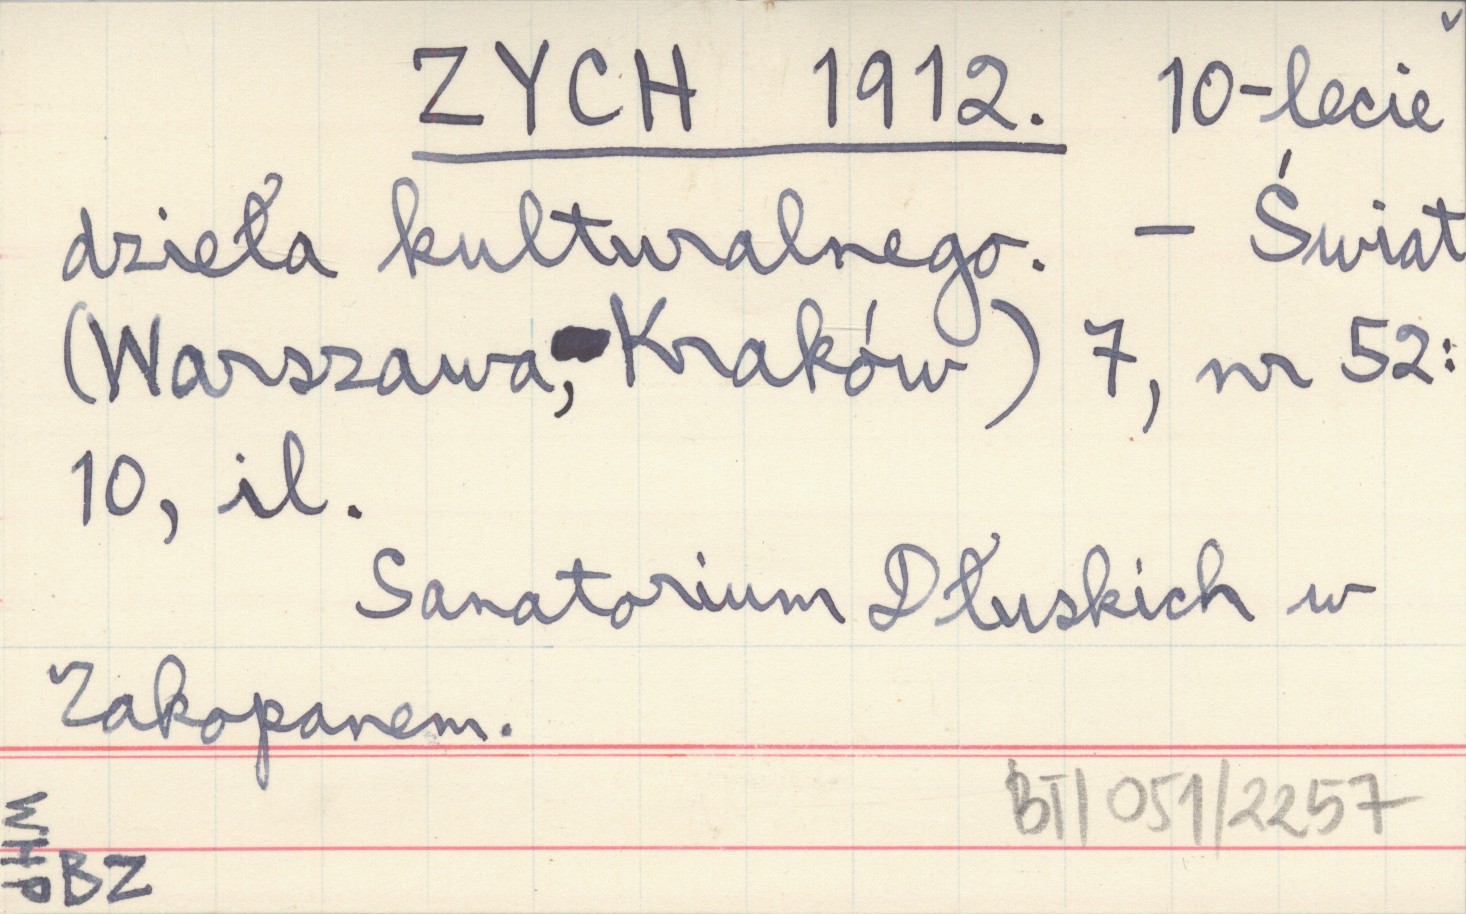 ZYCH 1912. 10-lecie
dzieła kulturalnego. - Świat
(Warszawa, Kraków) 7, nr 52:
10, il.
Sanatorium Dłuskich w
Zakopanem.
BT/051/2257
WHP
BZ